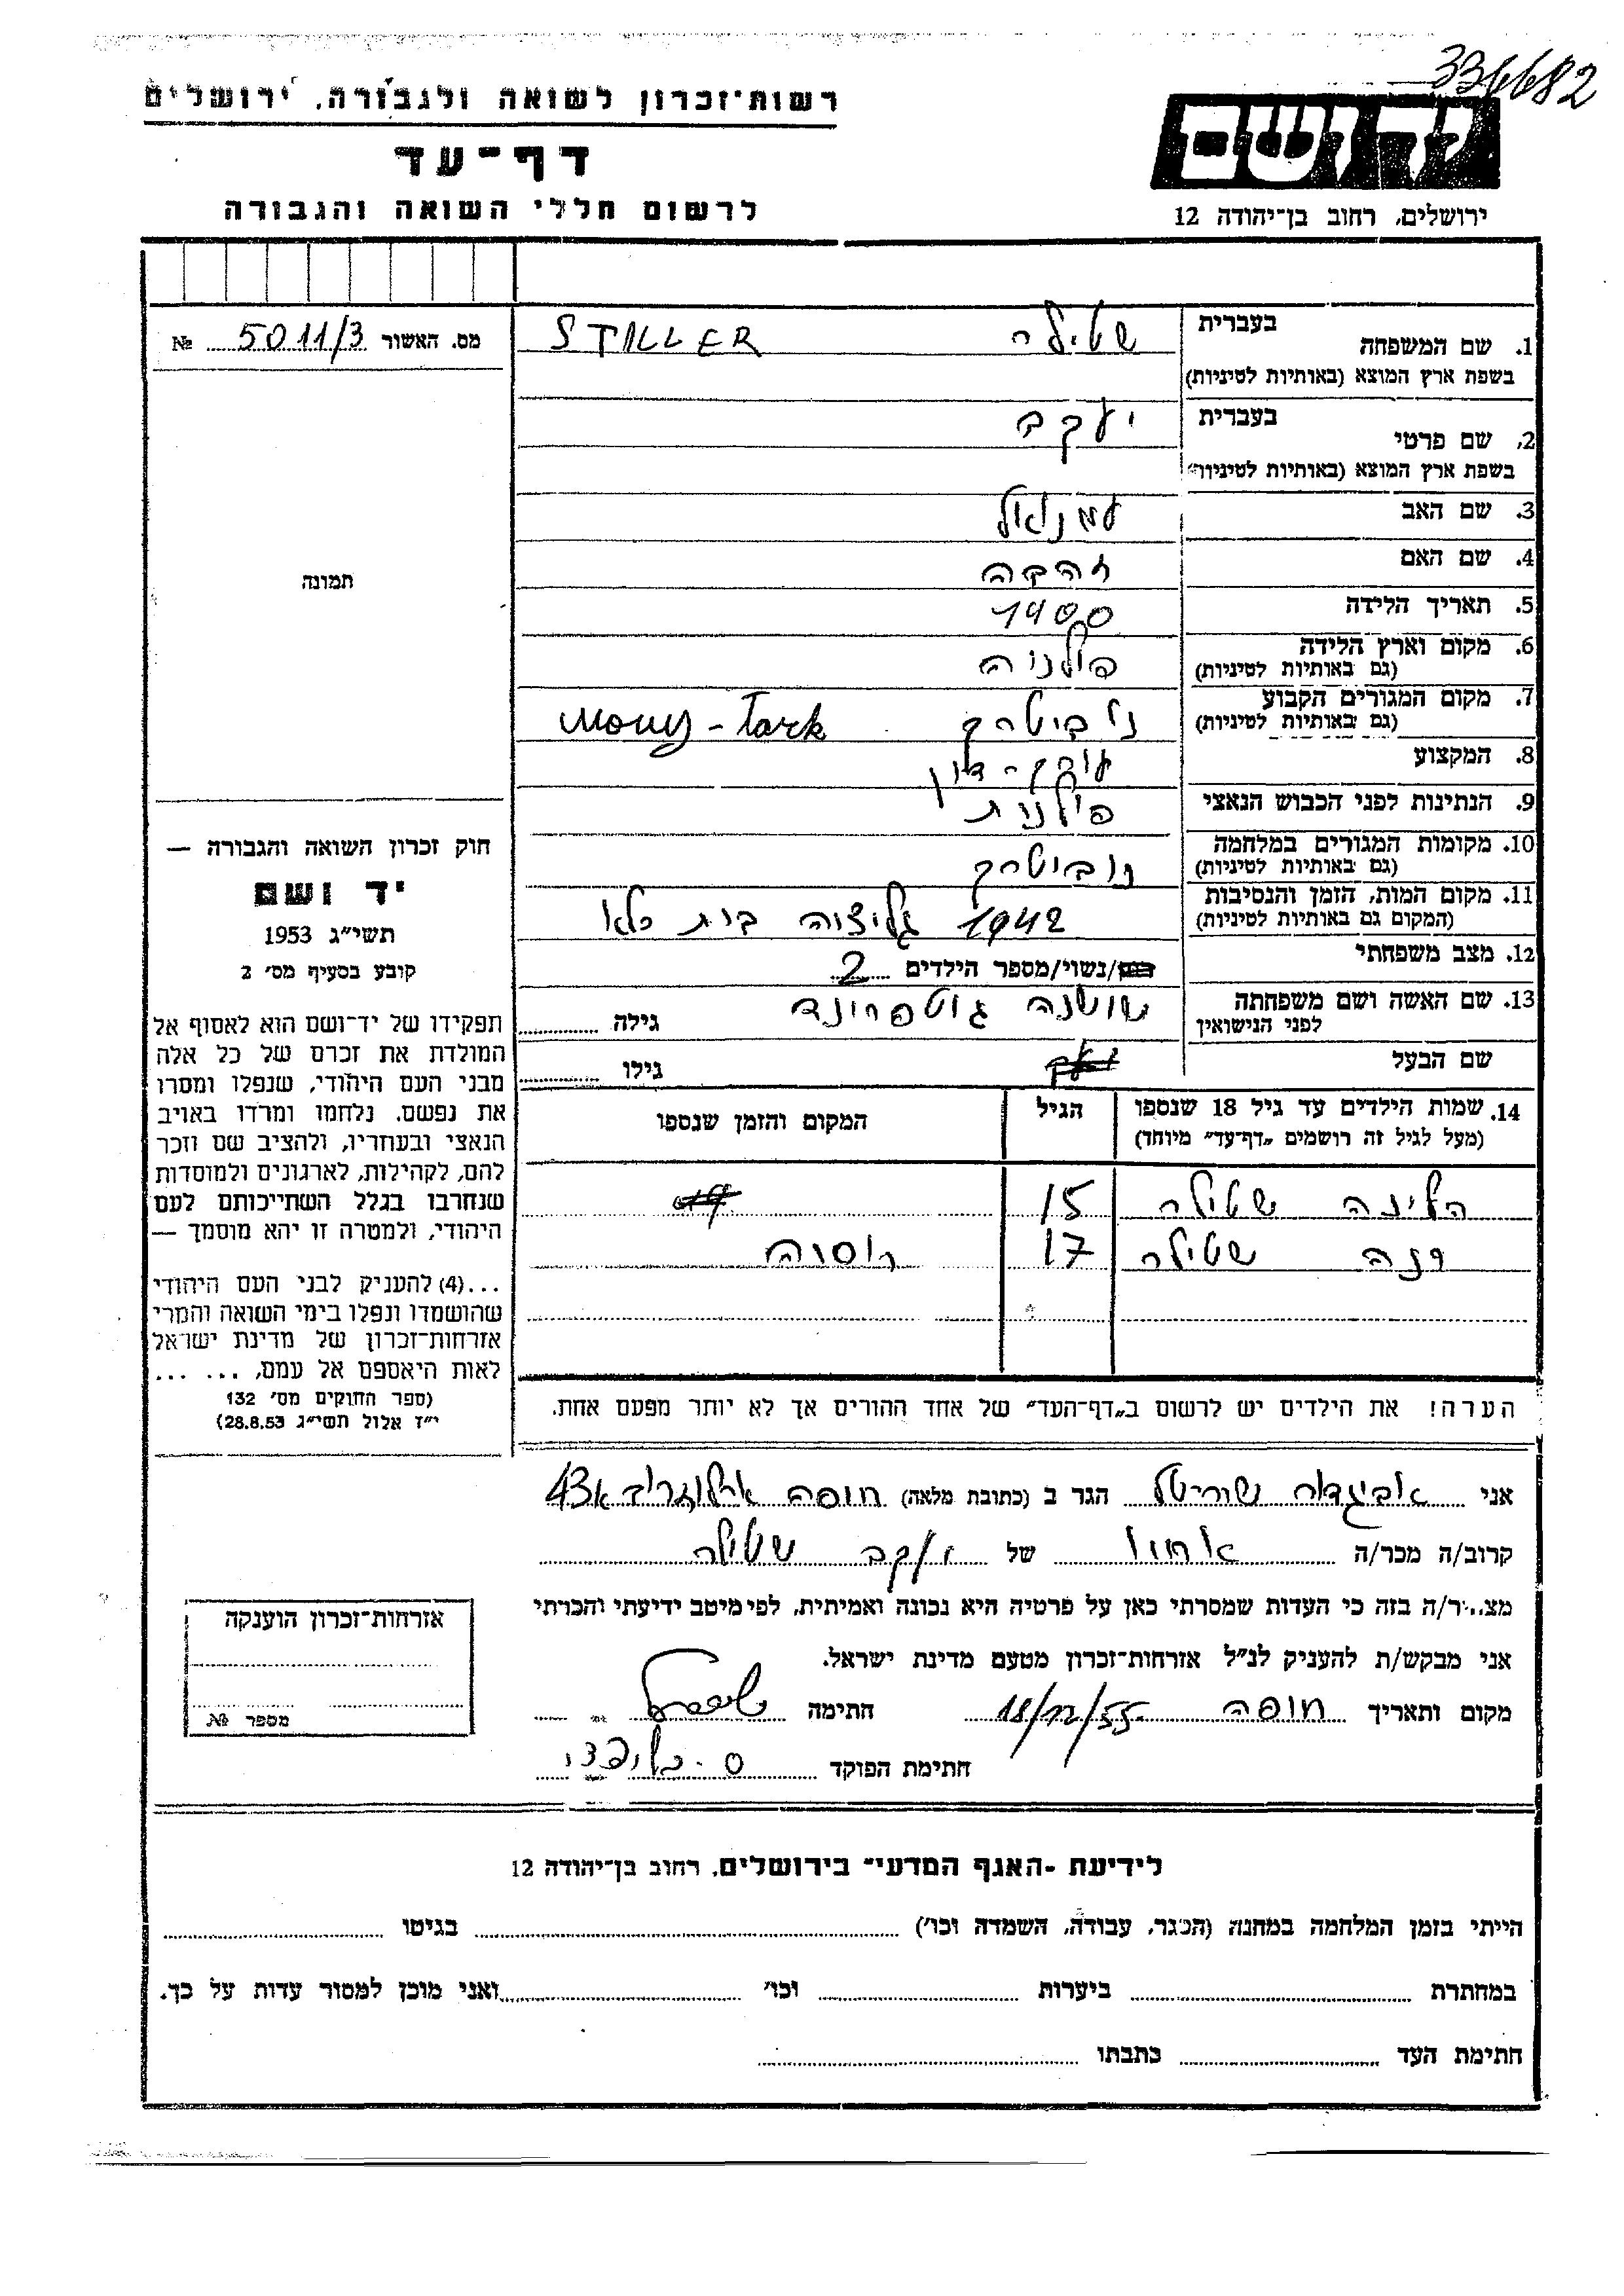 334682
רשות־זכרון לשואה ולגבורה, ירושלים
דף־עד
לרשום חללי השואה והגבורה
יד ושם
ירושלים, רחוב בן־יהודה 12
מס. האשור 5011/3 №
1. שם המשפחה בעברית שטילר STILLER
בשפת ארץ המוצא (באותיות לטיניות)
2. שם פרטי בעברית יעקב
בשפת ארץ המוצא (באותיות לטיניות)
3. שם האב עמנואל
4. שם האם רבקה
5. תאריך הלידה 1900
6. מקום וארץ הלידה פולניה
(גם באותיות לטיניות)
7. מקום המגורים הקבוע נוביטרק Nowy-Tark
(גם באותיות לטיניות)
8. המקצוע עורך-דין
9. הנתינות לפני הכבוש הנאצי פולנית
10. מקומות המגורים במלחמה נוביטרק
(גם באותיות לטיניות)
11. מקום המות, הזמן והנסיבות 1942 גליציה בית כלא
(המקום גם באותיות לטיניות)
12. מצב משפחתי
/נשוי/מספר הילדים 2
13. שם האשה ושם משפחתה שושנה גוטפרוינד גילה
לפני הנישואין
שם הבעל גילו
14. שמות הילדים עד גיל 18 שנספו הגיל המקום והזמן שנספו
(מעל לגיל זה רושמים „דף־עד״ מיוחד)
הלינה שטילר 15
דנה שטילר 17 רוסיה
הערה! את הילדים יש לרשום ב„דף־העד״ של אחד ההורים אך לא יותר מפעם אחת.
תמונה
חוק זכרון השואה והגבורה —
יד ושם
תשי״ג 1953
קובע בסעיף מס׳ 2
תפקידו של יד־ושם הוא לאסוף אל
המולדת את זכרם של כל אלה
מבני העם היהודי, שנפלו ומסרו
את נפשם. נלחמו ומרדו באויב
הנאצי ובעוזריו, ולהציב שם וזכר
להם, לקהילות, לארגונים ולמוסדות
שנחרבו בגלל השתייכותם לעם
היהודי, ולמטרה זו יהא מוסמך —
...(4) להעניק לבני העם היהודי
שהושמדו ונפלו בימי השואה והמרי
אזרחות־זכרון של מדינת ישראל
לאות היאספם אל עמם, ... ...
(ספר החוקים מס׳ 132
י״ז אלול תשי״ג 28.8.53)
אני אביגדור הגר ב (כתובת מלאה) חיפה ארלוזורוב 43א
קרוב/ה מכר/ה אחיו של יעקב שטילר
מצהיר/ה בזה כי העדות שמסרתי כאן על פרטיה היא נכונה ואמיתית, לפי מיטב ידיעתי והכרתי
אני מבקש/ת להעניק לנ״ל אזרחות־זכרון מטעם מדינת ישראל.
מקום ותאריך חיפה 18/12/55 חתימה
חתימת הפוקד
אזרחות־זכרון הוענקה
מספר №
לידיעת ־האגף המדעי״ בירושלים, רחוב בן־יהודה 12
הייתי בזמן המלחמה במחנה (הסגר, עבודה, השמדה וכו׳) בגיטו
במחתרת ביערות וכו׳ ואני מוכן למסור עדות על כך.
חתימת העד כתבתו